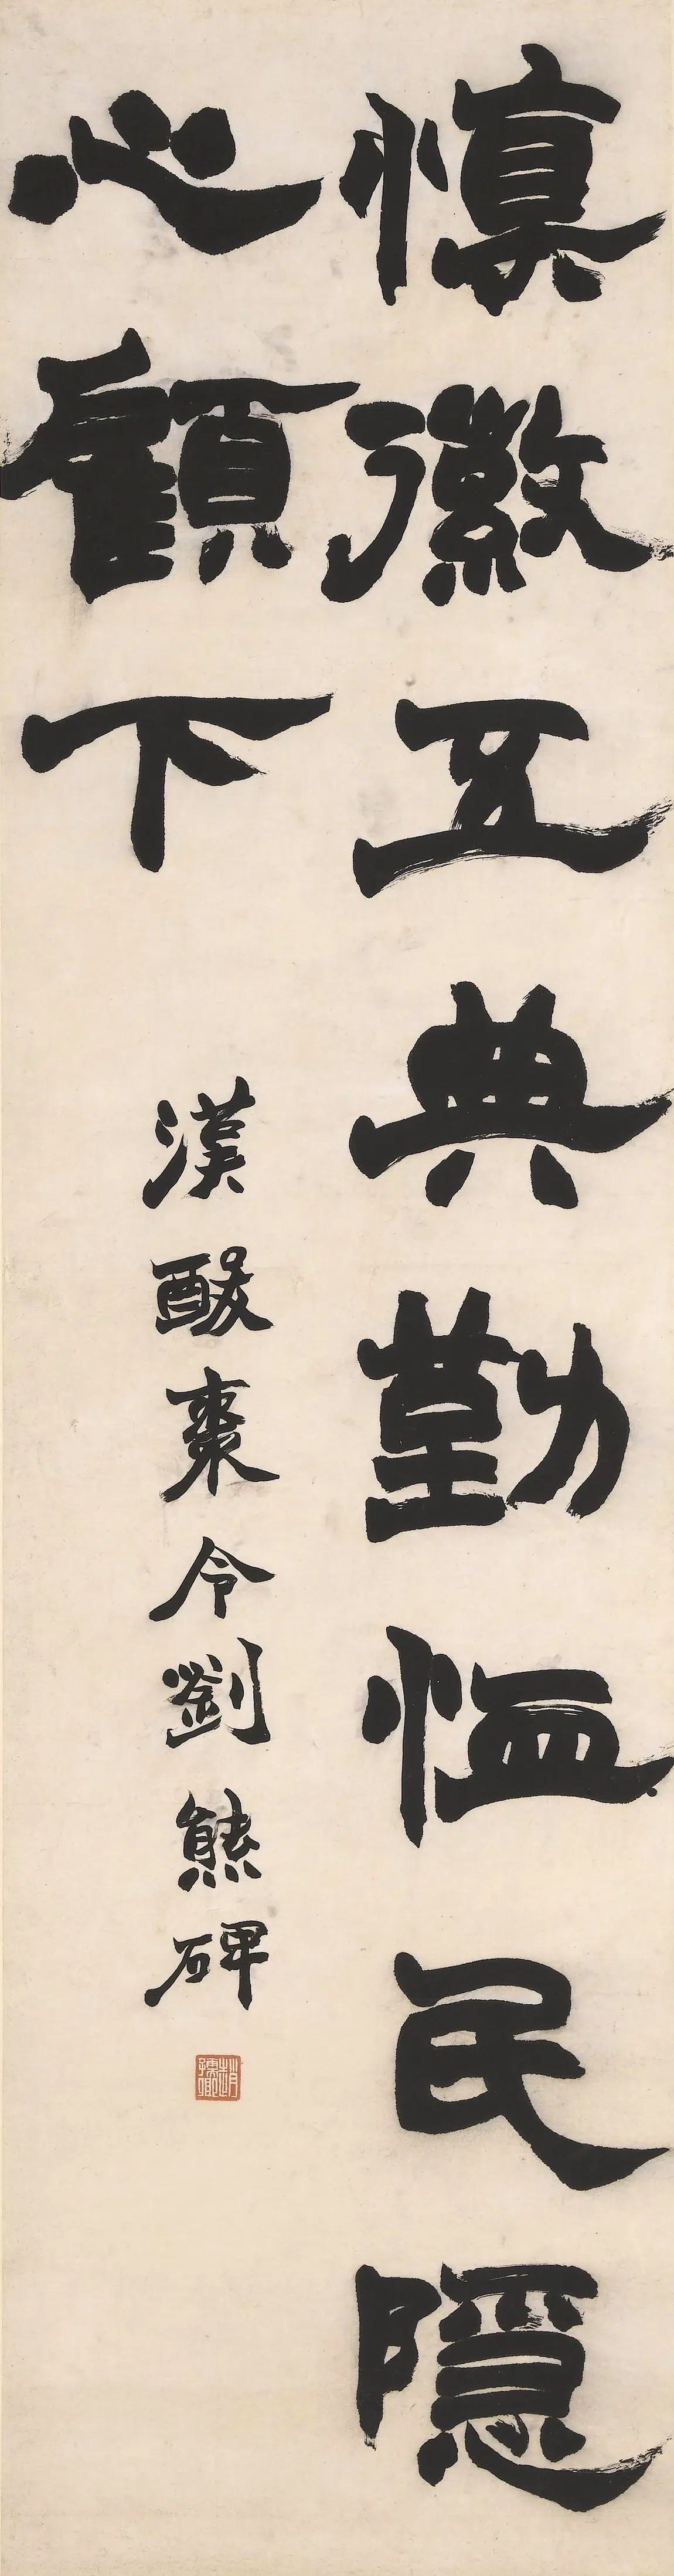 慎徽五典勤恤民隱
心顧下
漢酸棗令劉熊碑
趙孫卿